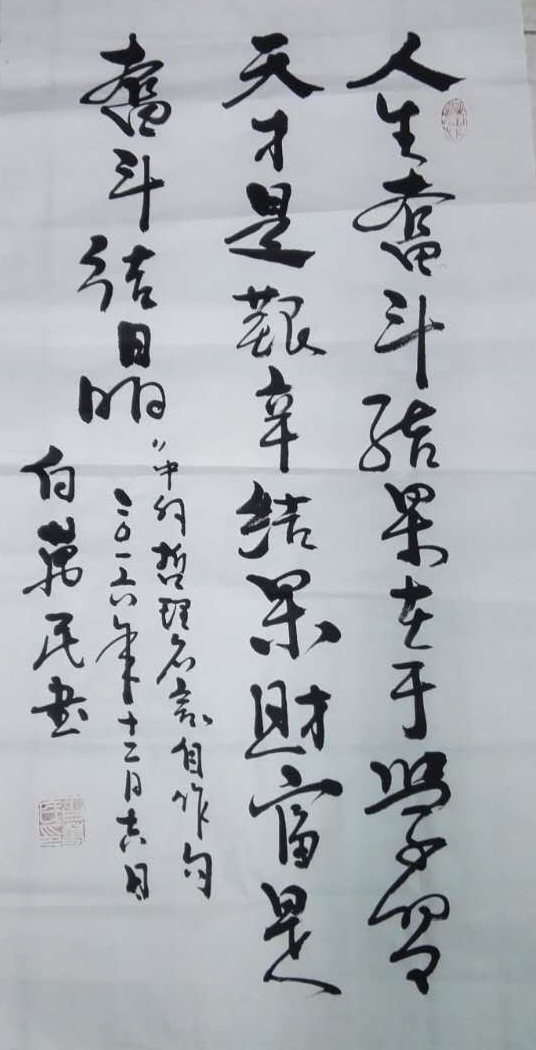 人生奮斗結果在于學習
天才是艱辛結果財富是
奮斗結晶
"中外哲理名言自作句
二〇一六年十二月十六日
白萬民书